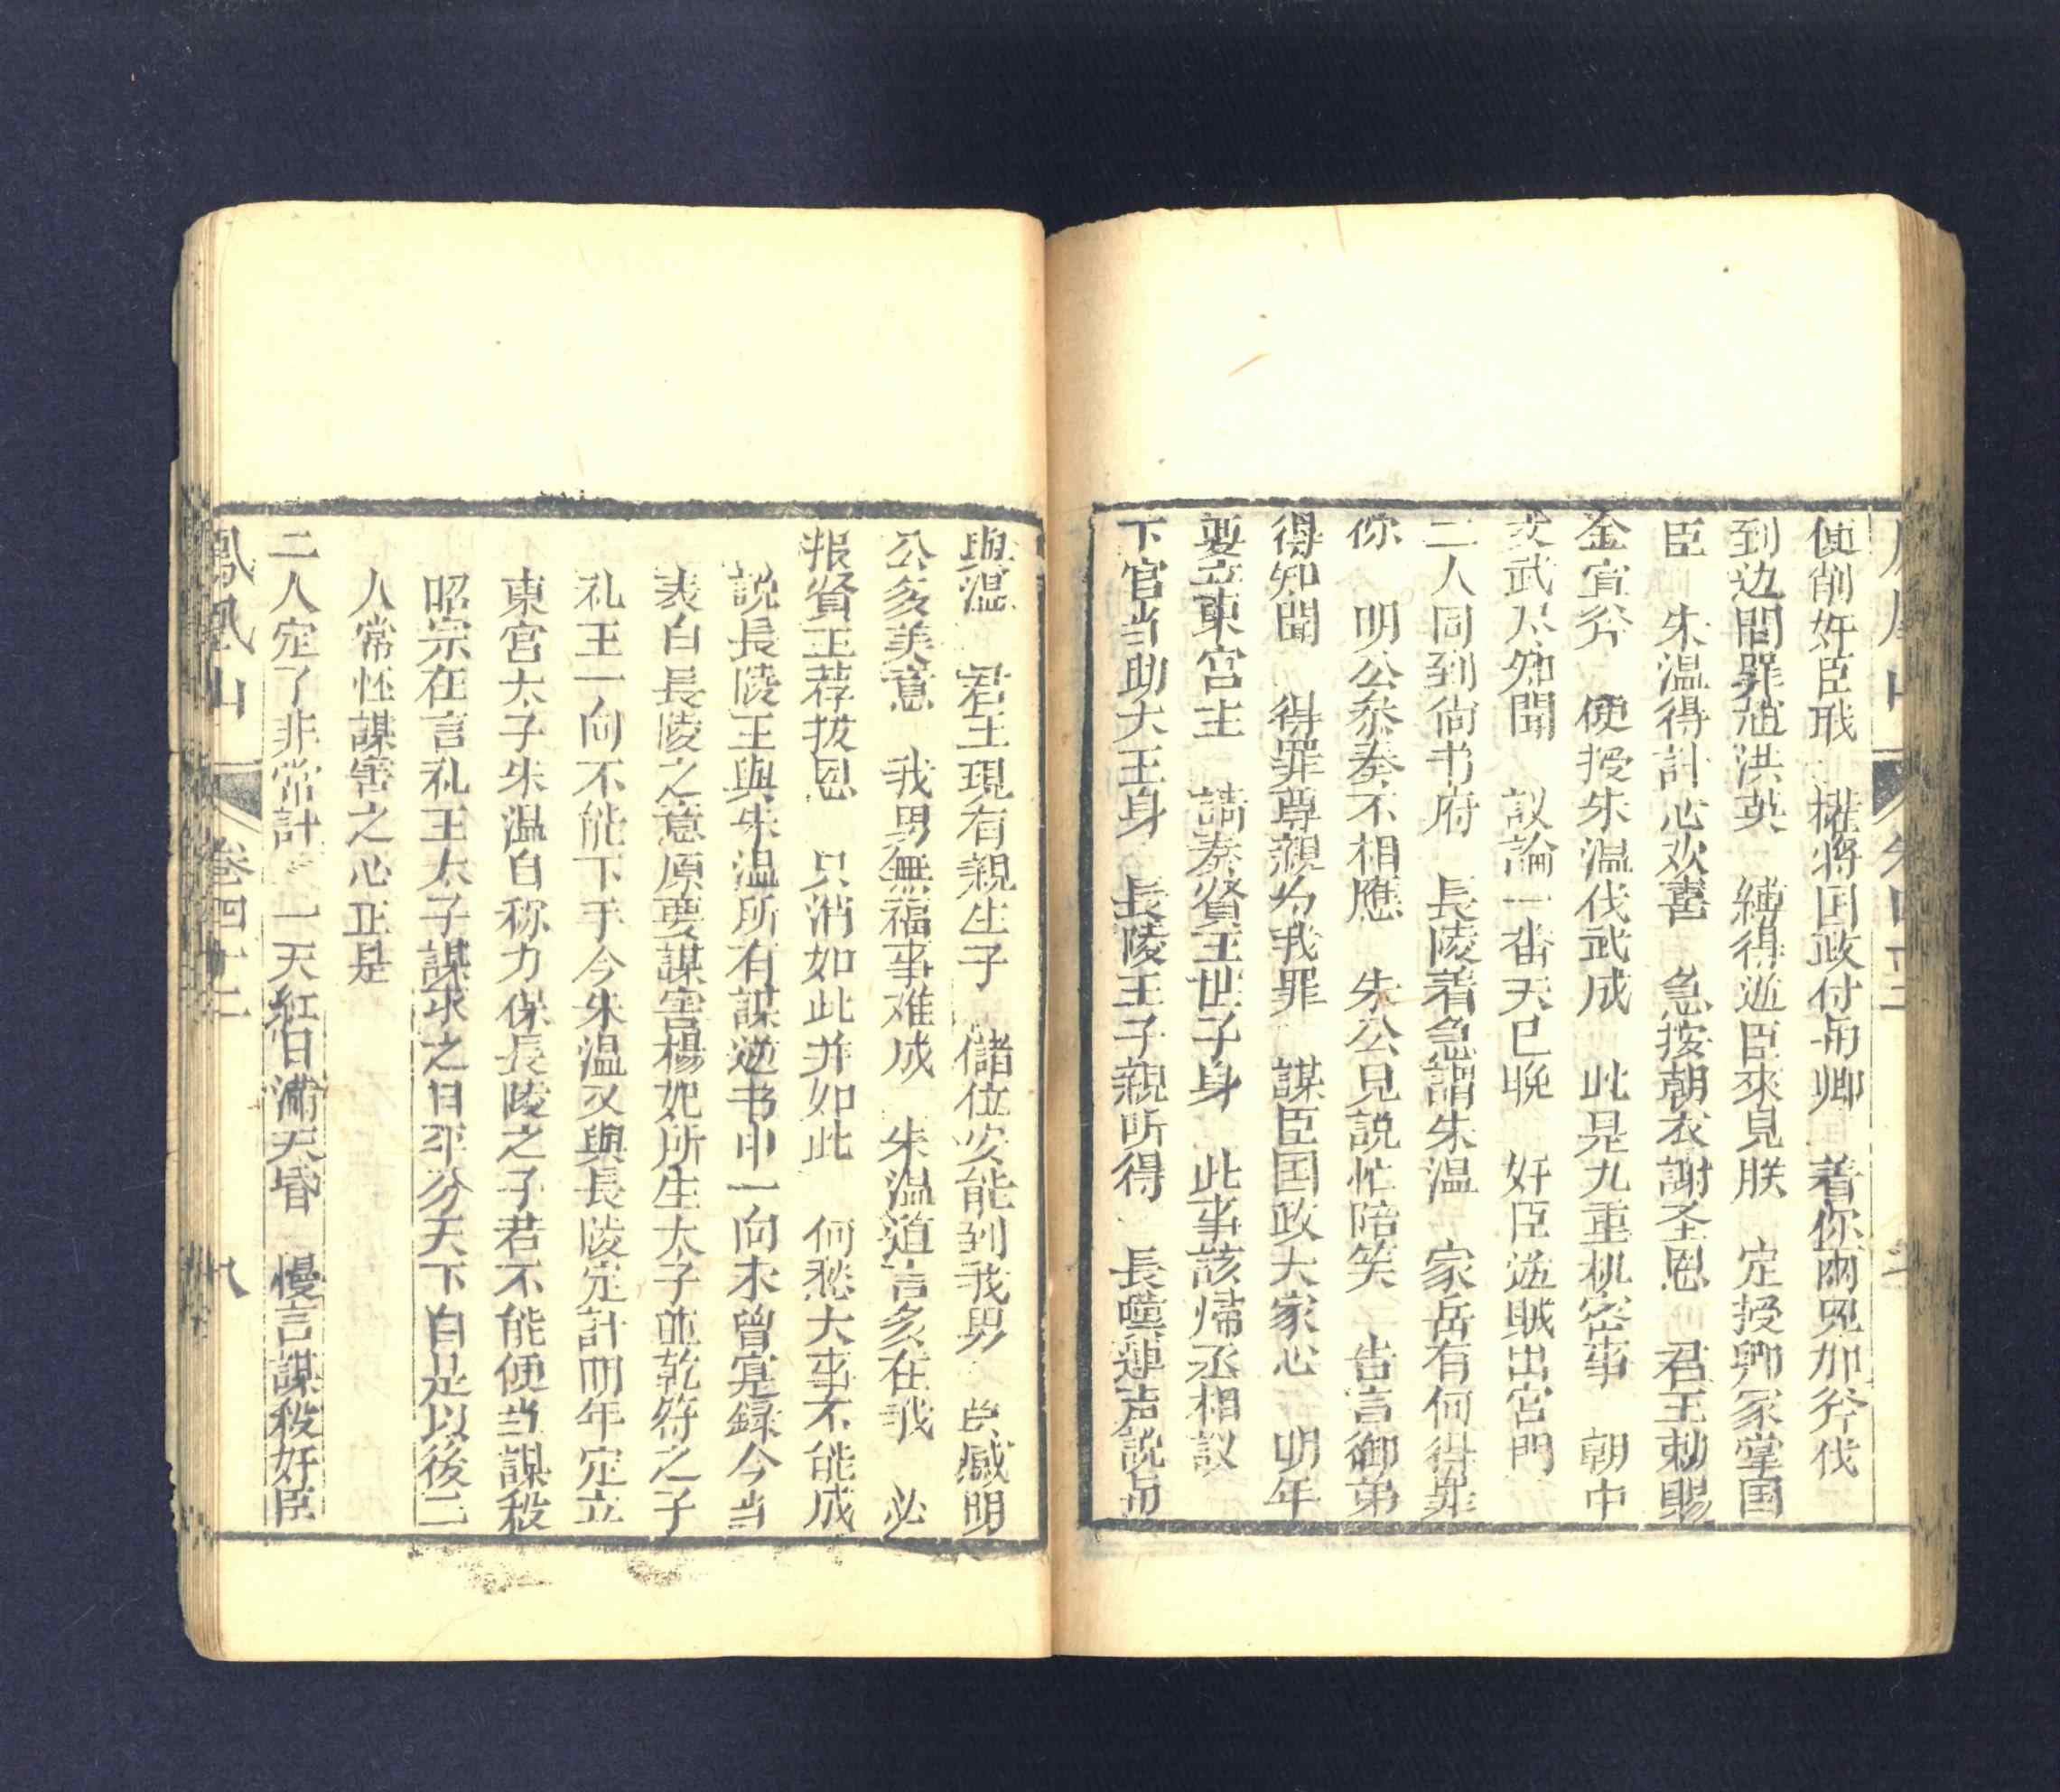 便削奸臣戝 權將囯政付与卿 着你兩兇加斧伐
到边間罪追洪英 縳得逆臣來見朕 定授卿家掌国
臣 朱温得計心欢喜 急按朝衣謝圣恩 君王勅賜
金宣斧 便授朱温伐武成 此是九重机密事 朝中
文武尽知聞 议論一畨天已晚 奸臣逆賊出宮門
二人同到尙书府 長陵着急謂朱温 家岳有何得罪
你 明公叅奏不相應 朱公見説忙陪笑 告言御弟
得知聞 得罪尊親为我罪 謀臣囯政大家心 明年
要立東宮主 請奏賢王世子身 此事該帰丞相议
下官当助大王身 長陵王子親听得 長嘆連声説与
與温 君王現有親生子 儲位安能到我男 臣感明
公多美意 我男無福事难成 朱温道言多在我 必
报賢王荐拔恩 只消如此并如此 何愁大事不能成
説長陵王與朱温所有謀逆书中一向未曾寔録今当
表白長陵之意原要謀害楊妃所生太子並乾符之子
礼王一向不能下手今朱温又與長陵定計明年定立
東宮太子朱温自称力保長陵之子君不能便当謀殺
昭宗在言礼王太子謀求之日平分天下自足以後二
人常怪謀害之心正是
二人定了非常計 一天紅日满天昏 慢言謀殺奸臣
鳳凰山 卷四十二 八